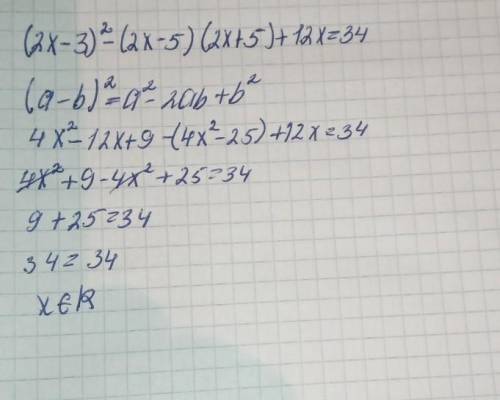 (2x-3)²-(2x-5)(2x+5)+12x=34
(a-b)²=a²-2ab+b²
4x²-12x+9-(4x²-25)+12x=34
4x²+9-4x²+25=34
9+25=34
34=34
x∈R